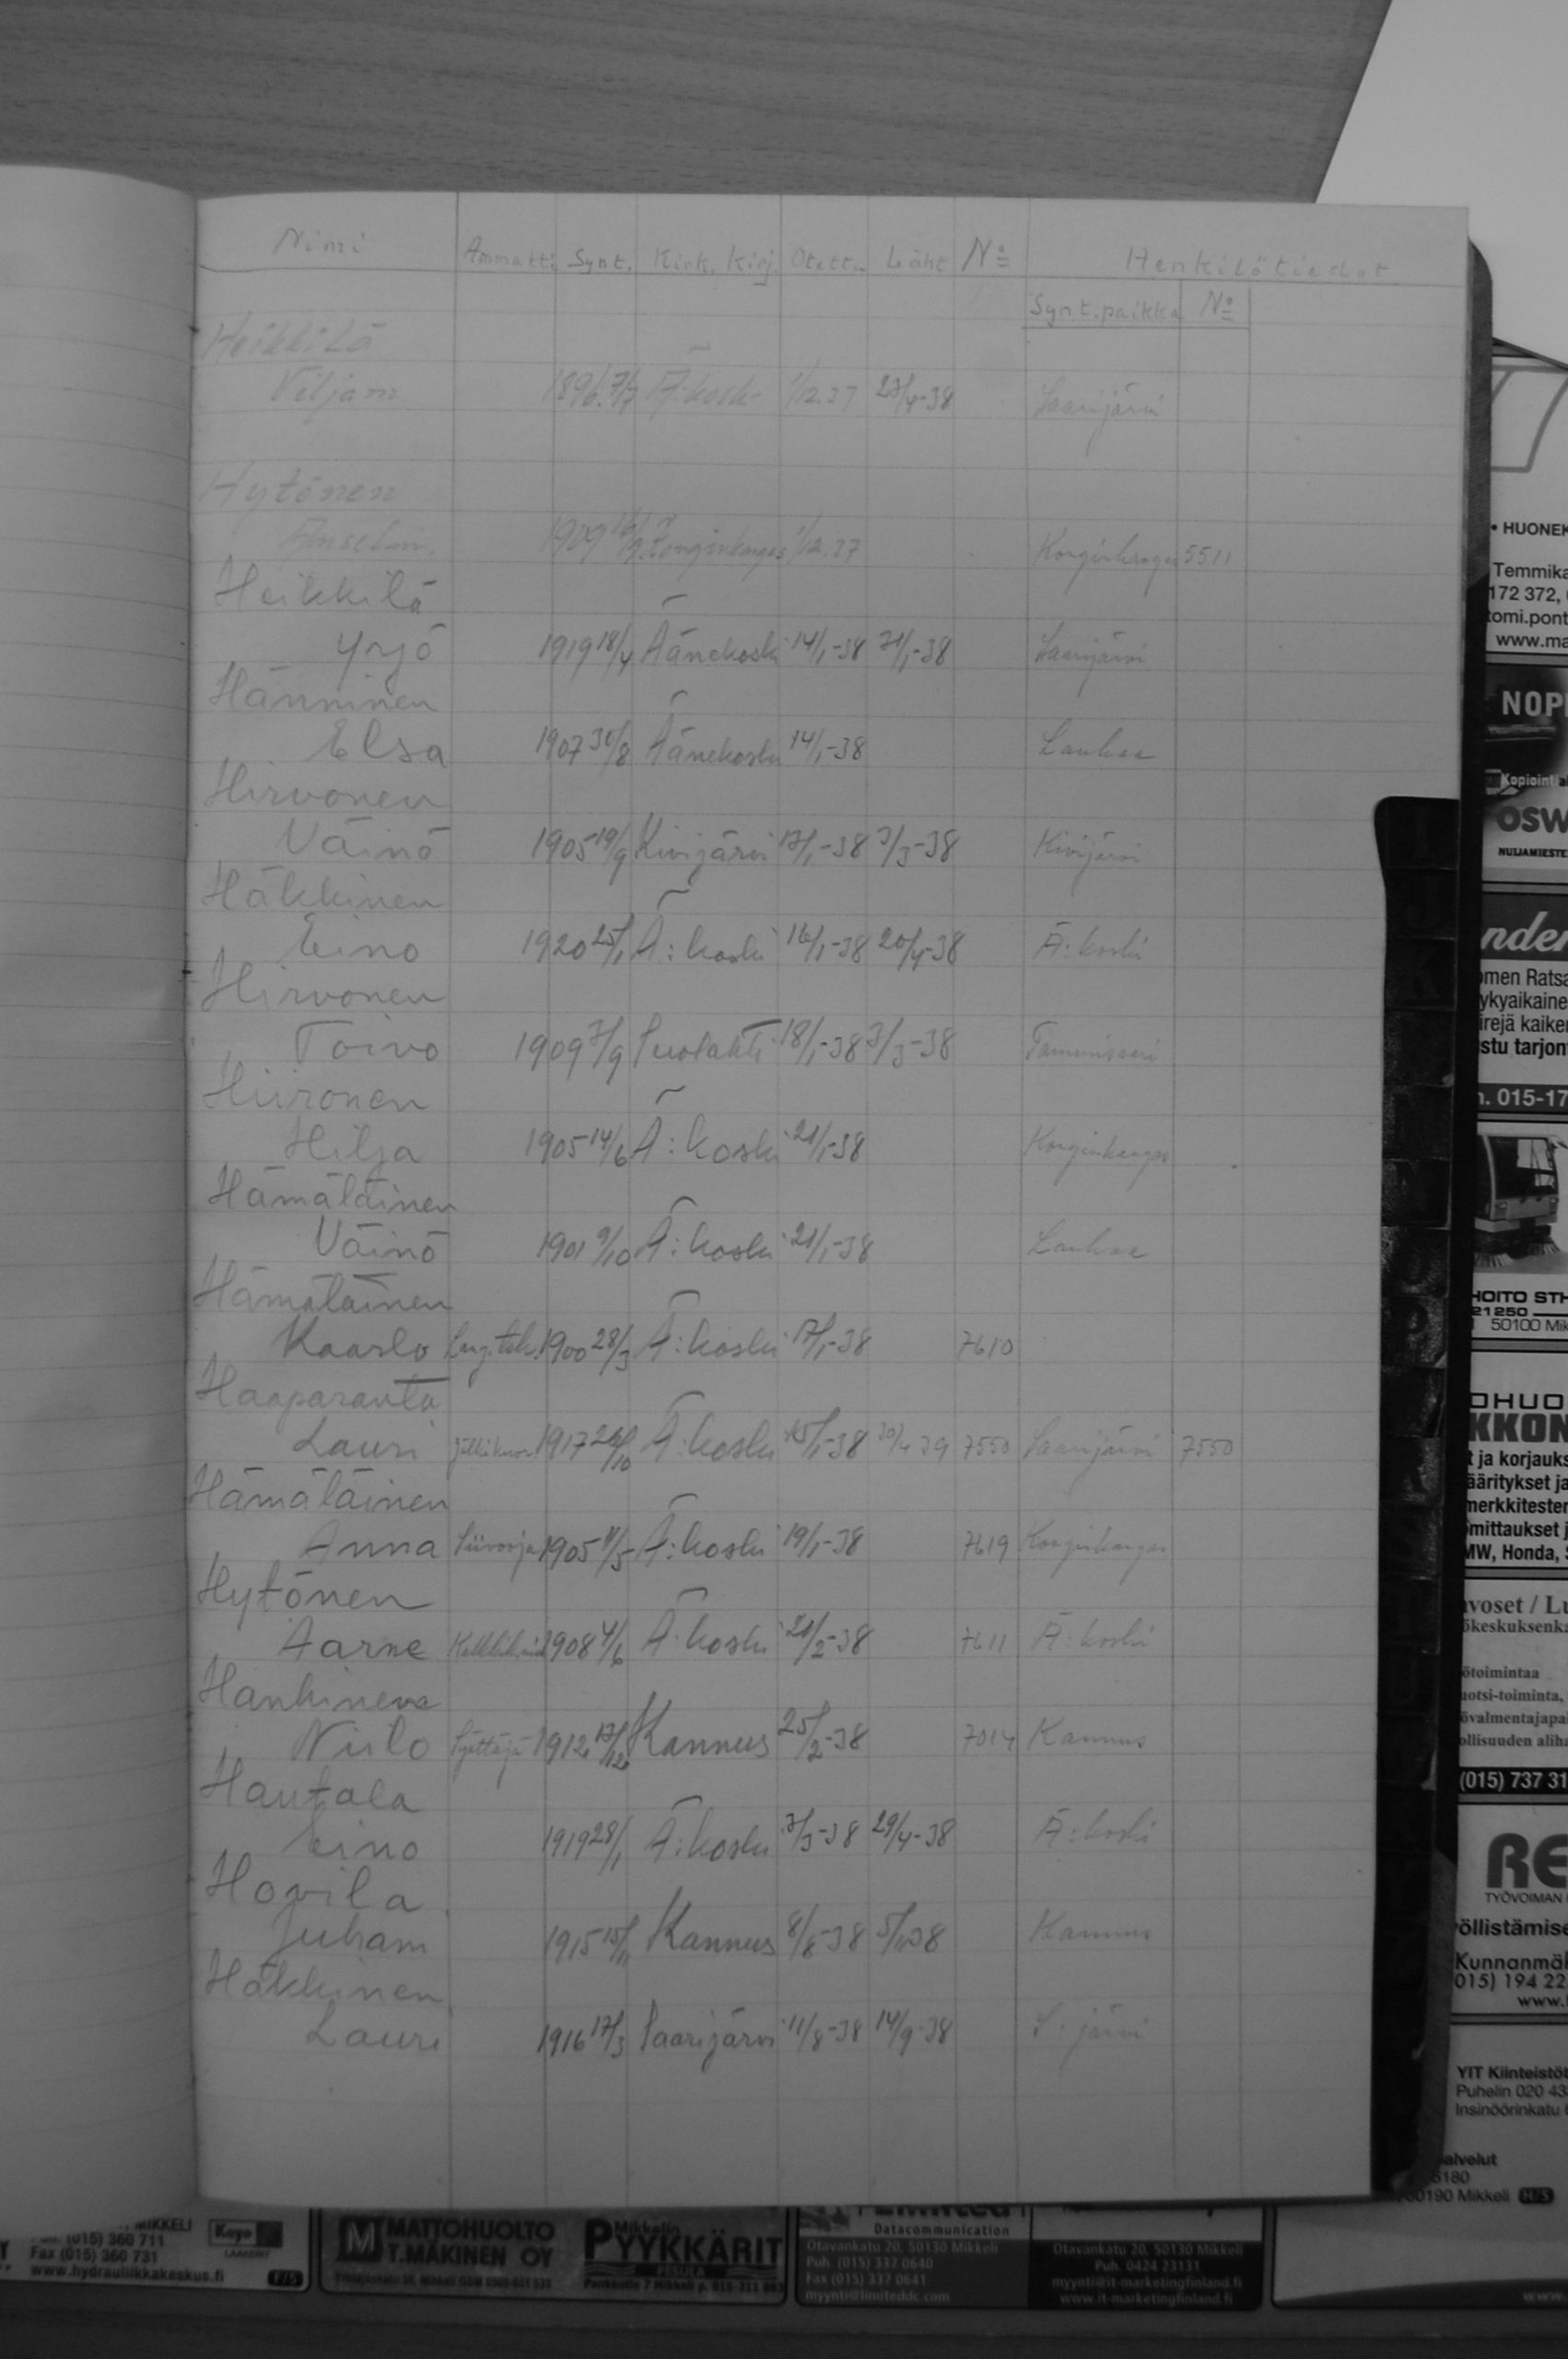 Nimi Ammatti Synt. Kirk. Kirj. Otett. Läht No Henkilötiedot
Synt.paikka No
Heikkilä
Viljam 1896 7/7 Ä:koski 1/12.37 23/4-38 Saarijärvi
Hytönen
Anselm. 1909 Konginkangas 1/12.37 Konginkangas 5511
Heikkilä
Yrjö 1919 18/4 Äänekoski 14/1-38 31/1-38 Saarijärvi
Hänninen
Elsa 1907 30/8 Äänekoski 14/1-38 Laukaa
Hirvonen
Väinö 1905 19/9 Kivijärvi 17/1-38 3/3-38 Kivijärvi
Häkkinen
Eino 1920 25/1 Ä:koski 16/1-38 20/4-38 Ä:koski
Hirvonen
Toivo 1909 7/9 Suolahti 18/1-38 3/3-38 Tammisaari
Hiironen
Hilja 1905 14/6 Ä:koski 21/1-38 Konginkangas
Hämäläinen
Väinö 1901 9/10 Ä:koski 21/1-38 Laukaa
Hämäläinen
Kaarlo 1900 28/3 Ä:koski 17/1-38 7610
Haaparanta
Lauri 1917 Ä:koski 15/1-38 30/4 39 7550 Saarijärvi 7550
Hämäläinen
Anna Siivooja 1905 11/5 Ä:koski 19/1-38 7619 Konginkangas
Hytönen
Aarne 1908 4/6 Ä:koski 21/2-38 7611 Ä:koski
Hankinen
Niilo Syöttäjä 1912 17/12 Kannus 25/2-38 7014 Kannus
Hautala
Eino 1919 28/1 Ä:koski 7/3-38 29/4-38 Ä:koski
Hovila
Juhani 1915 15/11 Kannus 8/8-38 5/1-38 Kannus
Häkkinen
Lauri 1916 17/3 Saarijärvi 11/8-38 14/9-38 S:järvi
• HUONEK
Temmika
172 372,
tomi.pont
www.ma
NOP
Kopiointi
OSW
NUIJAMIESTE
nder
omen Ratsa
ykyaikaine
irejä kaike
stu tarjon
n. 015-17
HOITO STH
21250
50100 Mik
OHUO
KKON
t ja korjauks
ääritykset ja
merkkitester
mittaukset j
MW, Honda, S
voset / Lu
ökeskuksenka
ötoimintaa
uotsi-toiminta,
övalmentajapal
ollisuuden aliha
(015) 737 31
RE
TYÖVOIMAN
öllistämise
Kunnanmäk
015) 194 22
www.
YIT Kiinteistöt
Puhelin 020 43
Insinöörinkatu
alvelut
5180
50190 Mikkeli H/5
MIKKELI
(015) 360 711
Fax (015) 360 731
www.hydrauliikkakeskus.fi
F/5
Kayo
M
MATTOHUOLTO
T.MÄKINEN OY
Mikkelin
PYYKKÄRIT
PESULA
Datacommunication
Otavankatu 20, 50130 Mikkeli
Puh. (015) 337 0640
Fax (015) 337 0641
myynti@limiteddc.com
Otavankatu 20, 50130 Mikkeli
Puh. 0424 23131
myynti@it-marketingfinland.fi
www.it-marketingfinland.fi